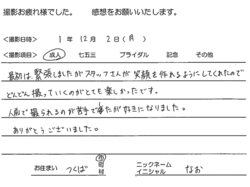 撮影お疲れ様でした。 感想をお願いいたします。
<撮影日時> 1 年 12 月 2 日 ( 月 )
<撮影項目> 成人 七五三 ブライダル 記念 その他
最初は緊張しましたがスタッフさんが笑顔を作れるようにしてくれたので
どんどん撮っていくのがとても楽しかったです。
人前で撮られるのが苦手でしたが好きになりました。
ありがとうございました。
お住まい つくば 市 町 村 ニックネーム イニシャル なお